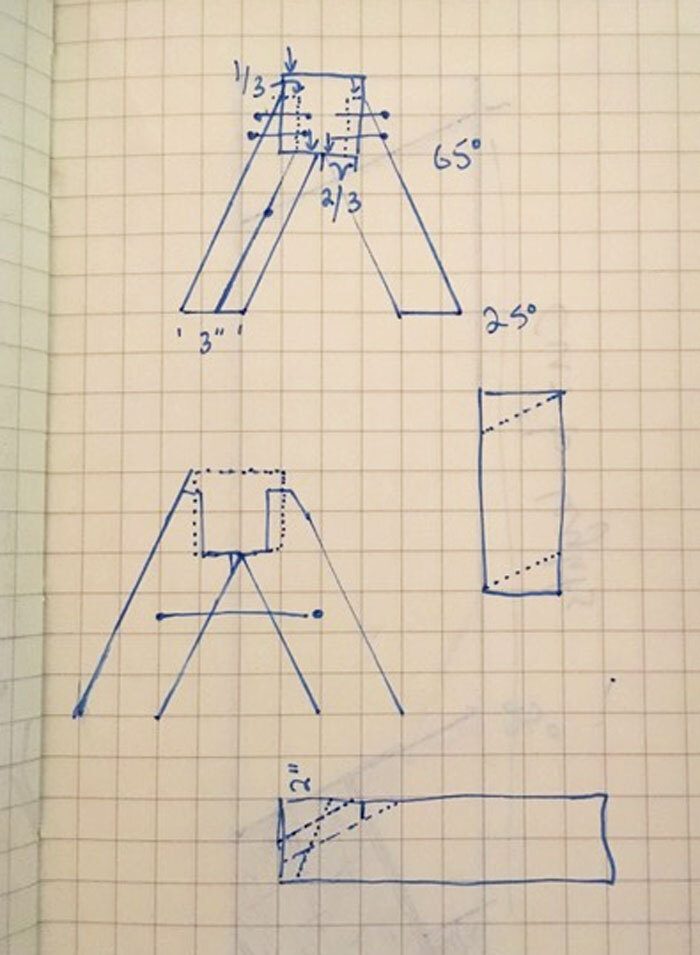 1/3
65°
2/3
25°
' 3" '
2"